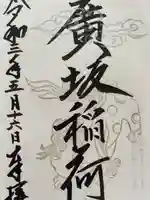 廣坂稲荷
令和三年五月十六日